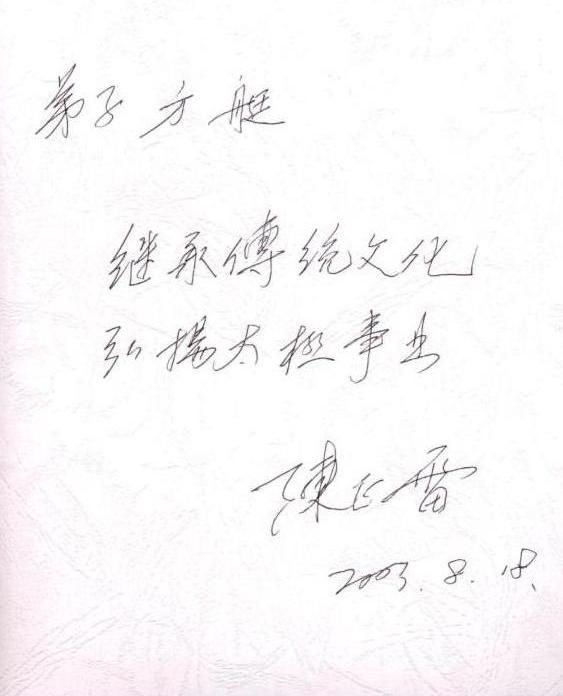 弟子方艇
继承傳统文化
弘揚太极事业
陳正雷
2003.8.18.